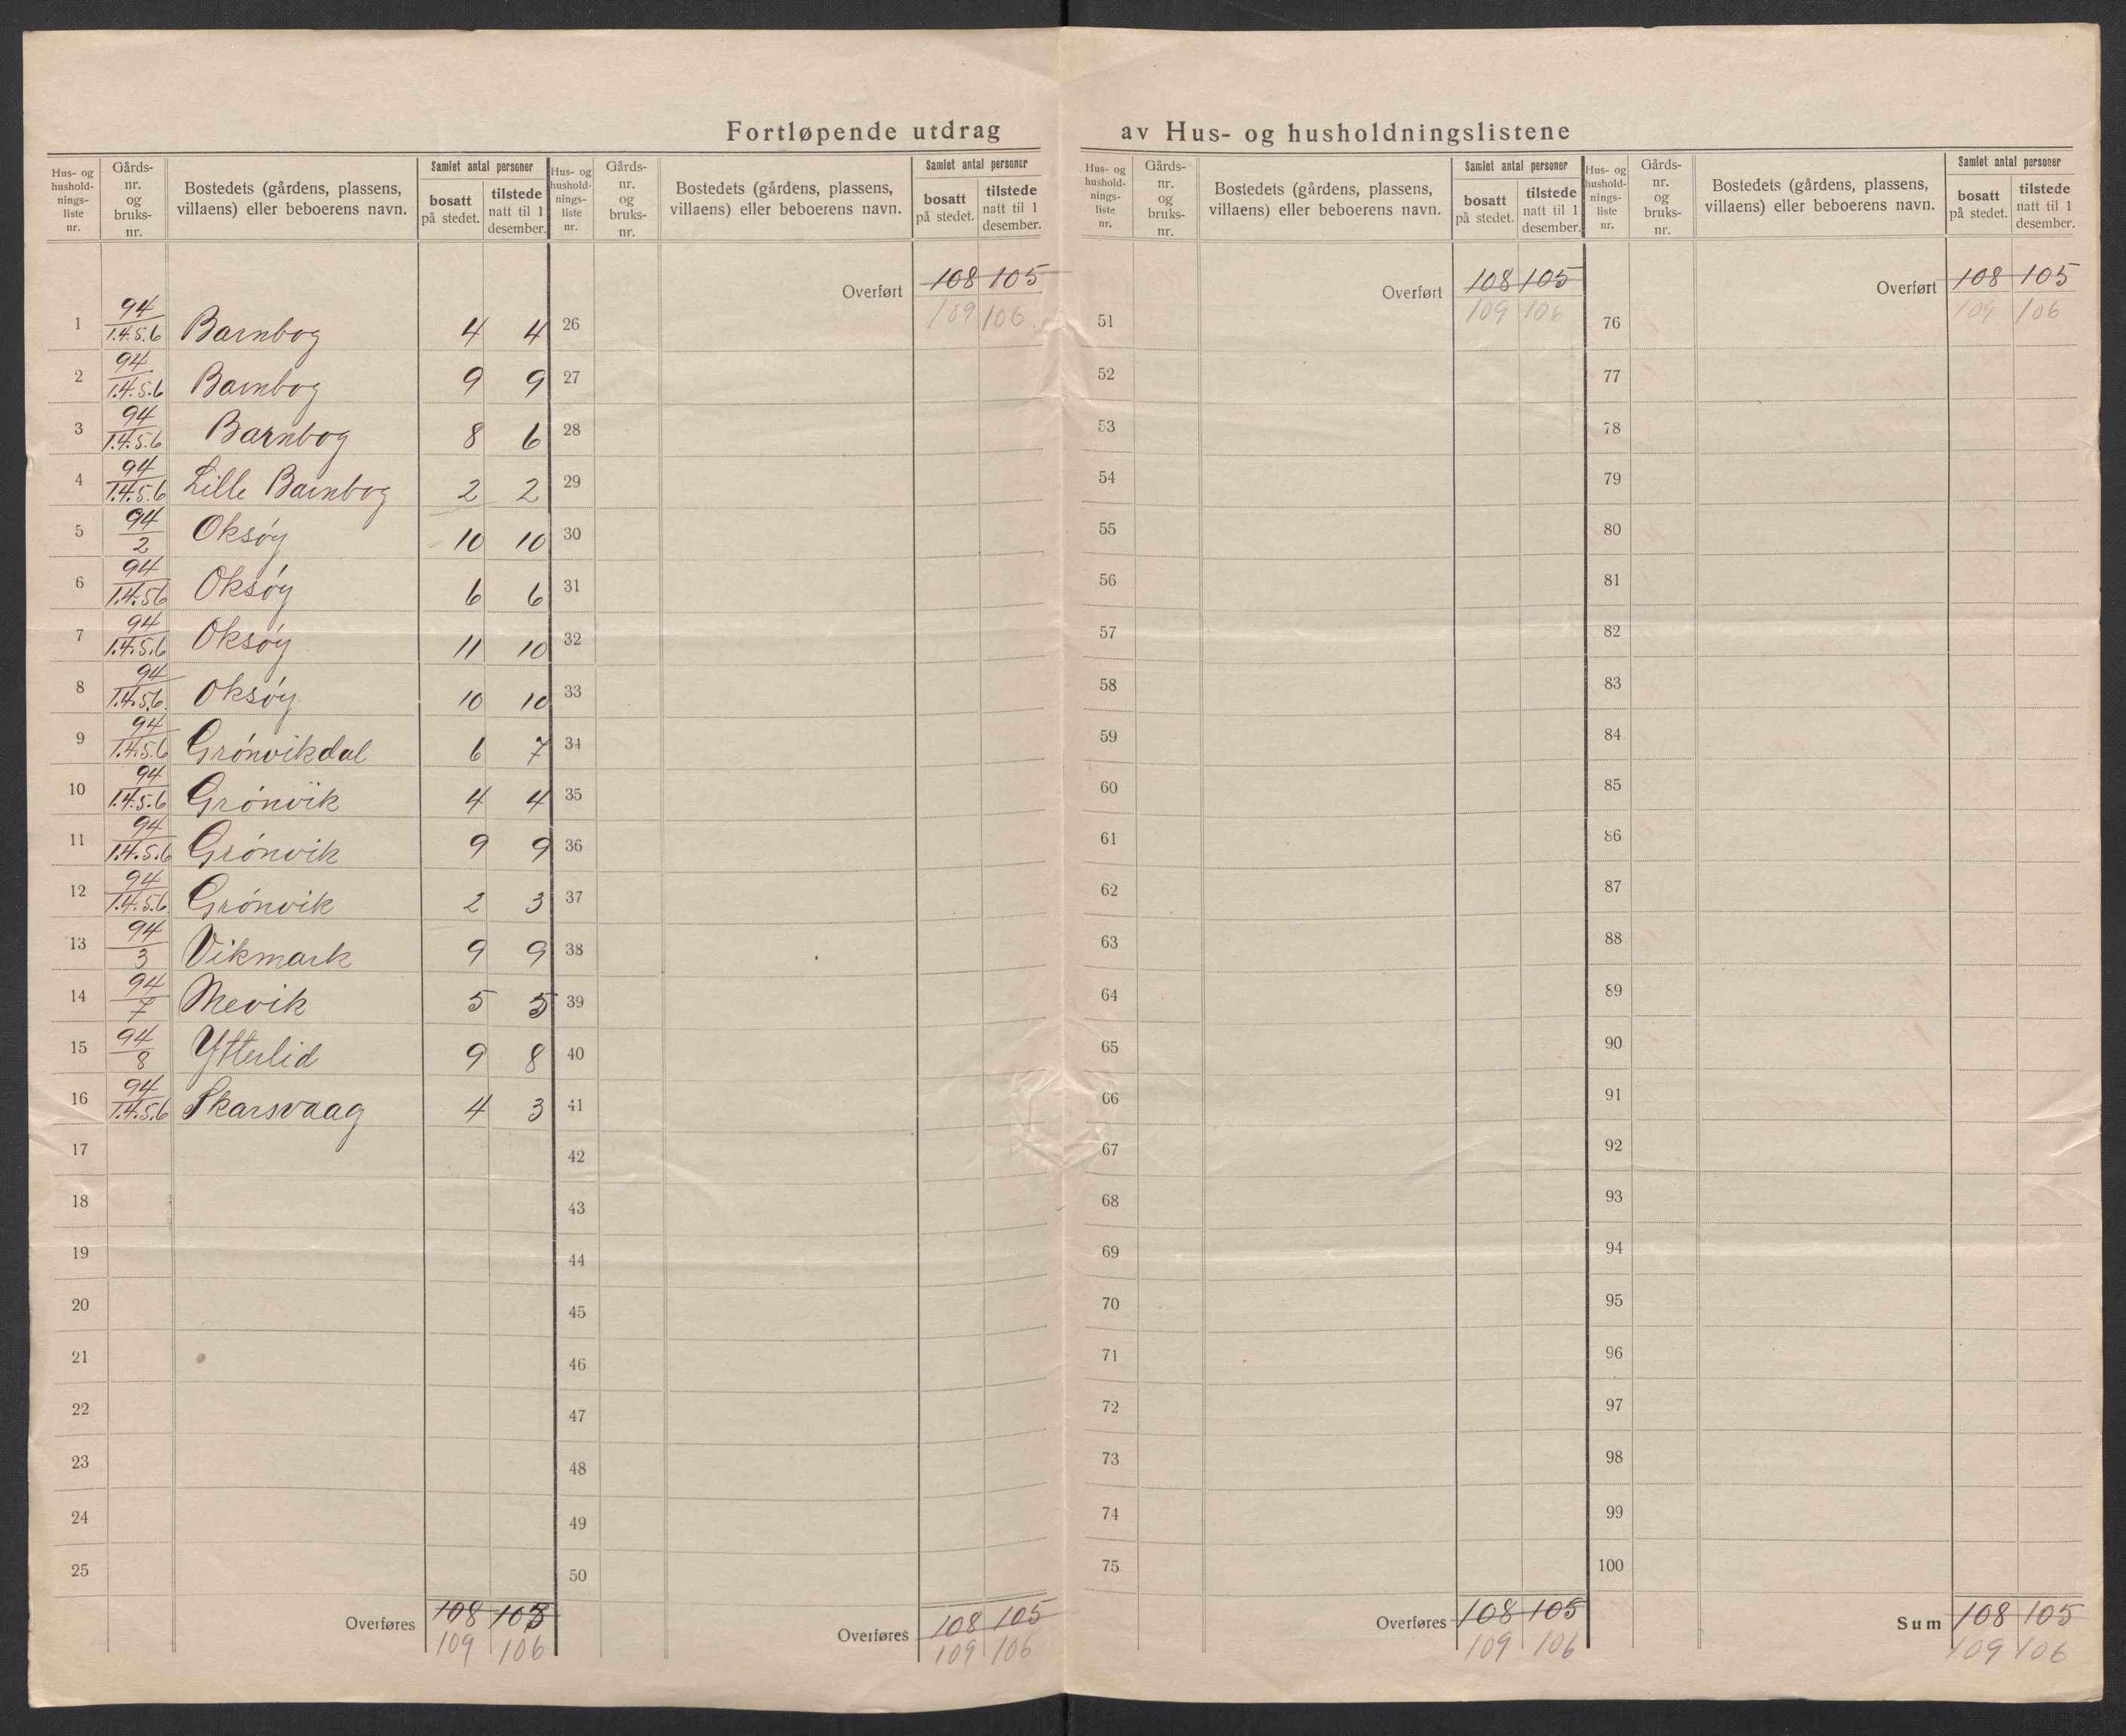 Fortløpende utdrag av Hus- og husholdningslistene
Hus- og husholdningsliste nr. | Gårds- nr. og bruks- nr. | Bostedets (gårdens, plassens, villaens) eller beboerens navn. | Samlet antal personer bosatt på stedet. | tilstede natt til 1 desember.
1 94/1.4.5.6 Barnbog 4 4
2 94/1.4.5.6 Barnbog 9 9
3 94/1.4.5.6 Barnbog 8 6
4 94/1.4.5.6 Lille Barnbog 2 2
5 94/2 Oksøy 10 10
6 94/1.4.56 Oksøy 6 6
7 94/1.4.5.6 Oksøy 11 10
8 94/1.4.5.6. Oksøy 10 10
9 94/1.4.5.6 Grønvikdal 6 7
10 94/1.4.5.6 Grønvik 4 4
11 94/1.4.5.6 Grønvik 9 9
12 94/1.4.5.6. Grønvik 2 3
13 94/3 Vikmark 9 9
14 94/7 Mevik 5 5
15 94/8 Ytterlid 9 8
16 94/1.4.5.6 Skarsvaag 4 3
17
18
19
20
21
22
23
24
25
Overføres 108 105
109 106
Hus- og husholdningsliste nr. | Gårds- nr. og bruks- nr. | Bostedets (gårdens, plassens, villaens) eller beboerens navn. | Samlet antal personer bosatt på stedet. | tilstede natt til 1 desember.
Overført 108 105
109 106
26
27
28
29
30
31
32
33
34
35
36
37
38
39
40
41
42
43
44
45
46
47
48
49
50
Overføres 108 105
109 106
Hus- og husholdningsliste nr. | Gårds- nr. og bruks- nr. | Bostedets (gårdens, plassens, villaens) eller beboerens navn. | Samlet antal personer bosatt på stedet. | tilstede natt til 1 desember.
Overført 108 105
109 106
51
52
53
54
55
56
57
58
59
60
61
62
63
64
65
66
67
68
69
70
71
72
73
74
75
Overføres 108 105
109 106
Hus- og husholdningsliste nr. | Gårds- nr. og bruks- nr. | Bostedets (gårdens, plassens, villaens) eller beboerens navn. | Samlet antal personer bosatt på stedet. | tilstede natt til 1 desember.
Overført 108 105
109 106
76
77
78
79
80
81
82
83
84
85
86
87
88
89
90
91
92
93
94
95
96
97
98
99
100
Sum 108 105
109 106